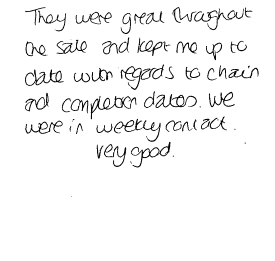 They were great throughout
the sale and kept me up to
date with regards to chain
and completion dates. We
were in weekly contact.
very good.